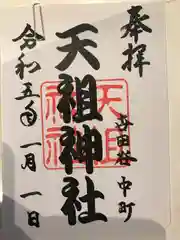 奉拝
世田谷中町
天祖神社
天祖
神社
令和五年一月一日